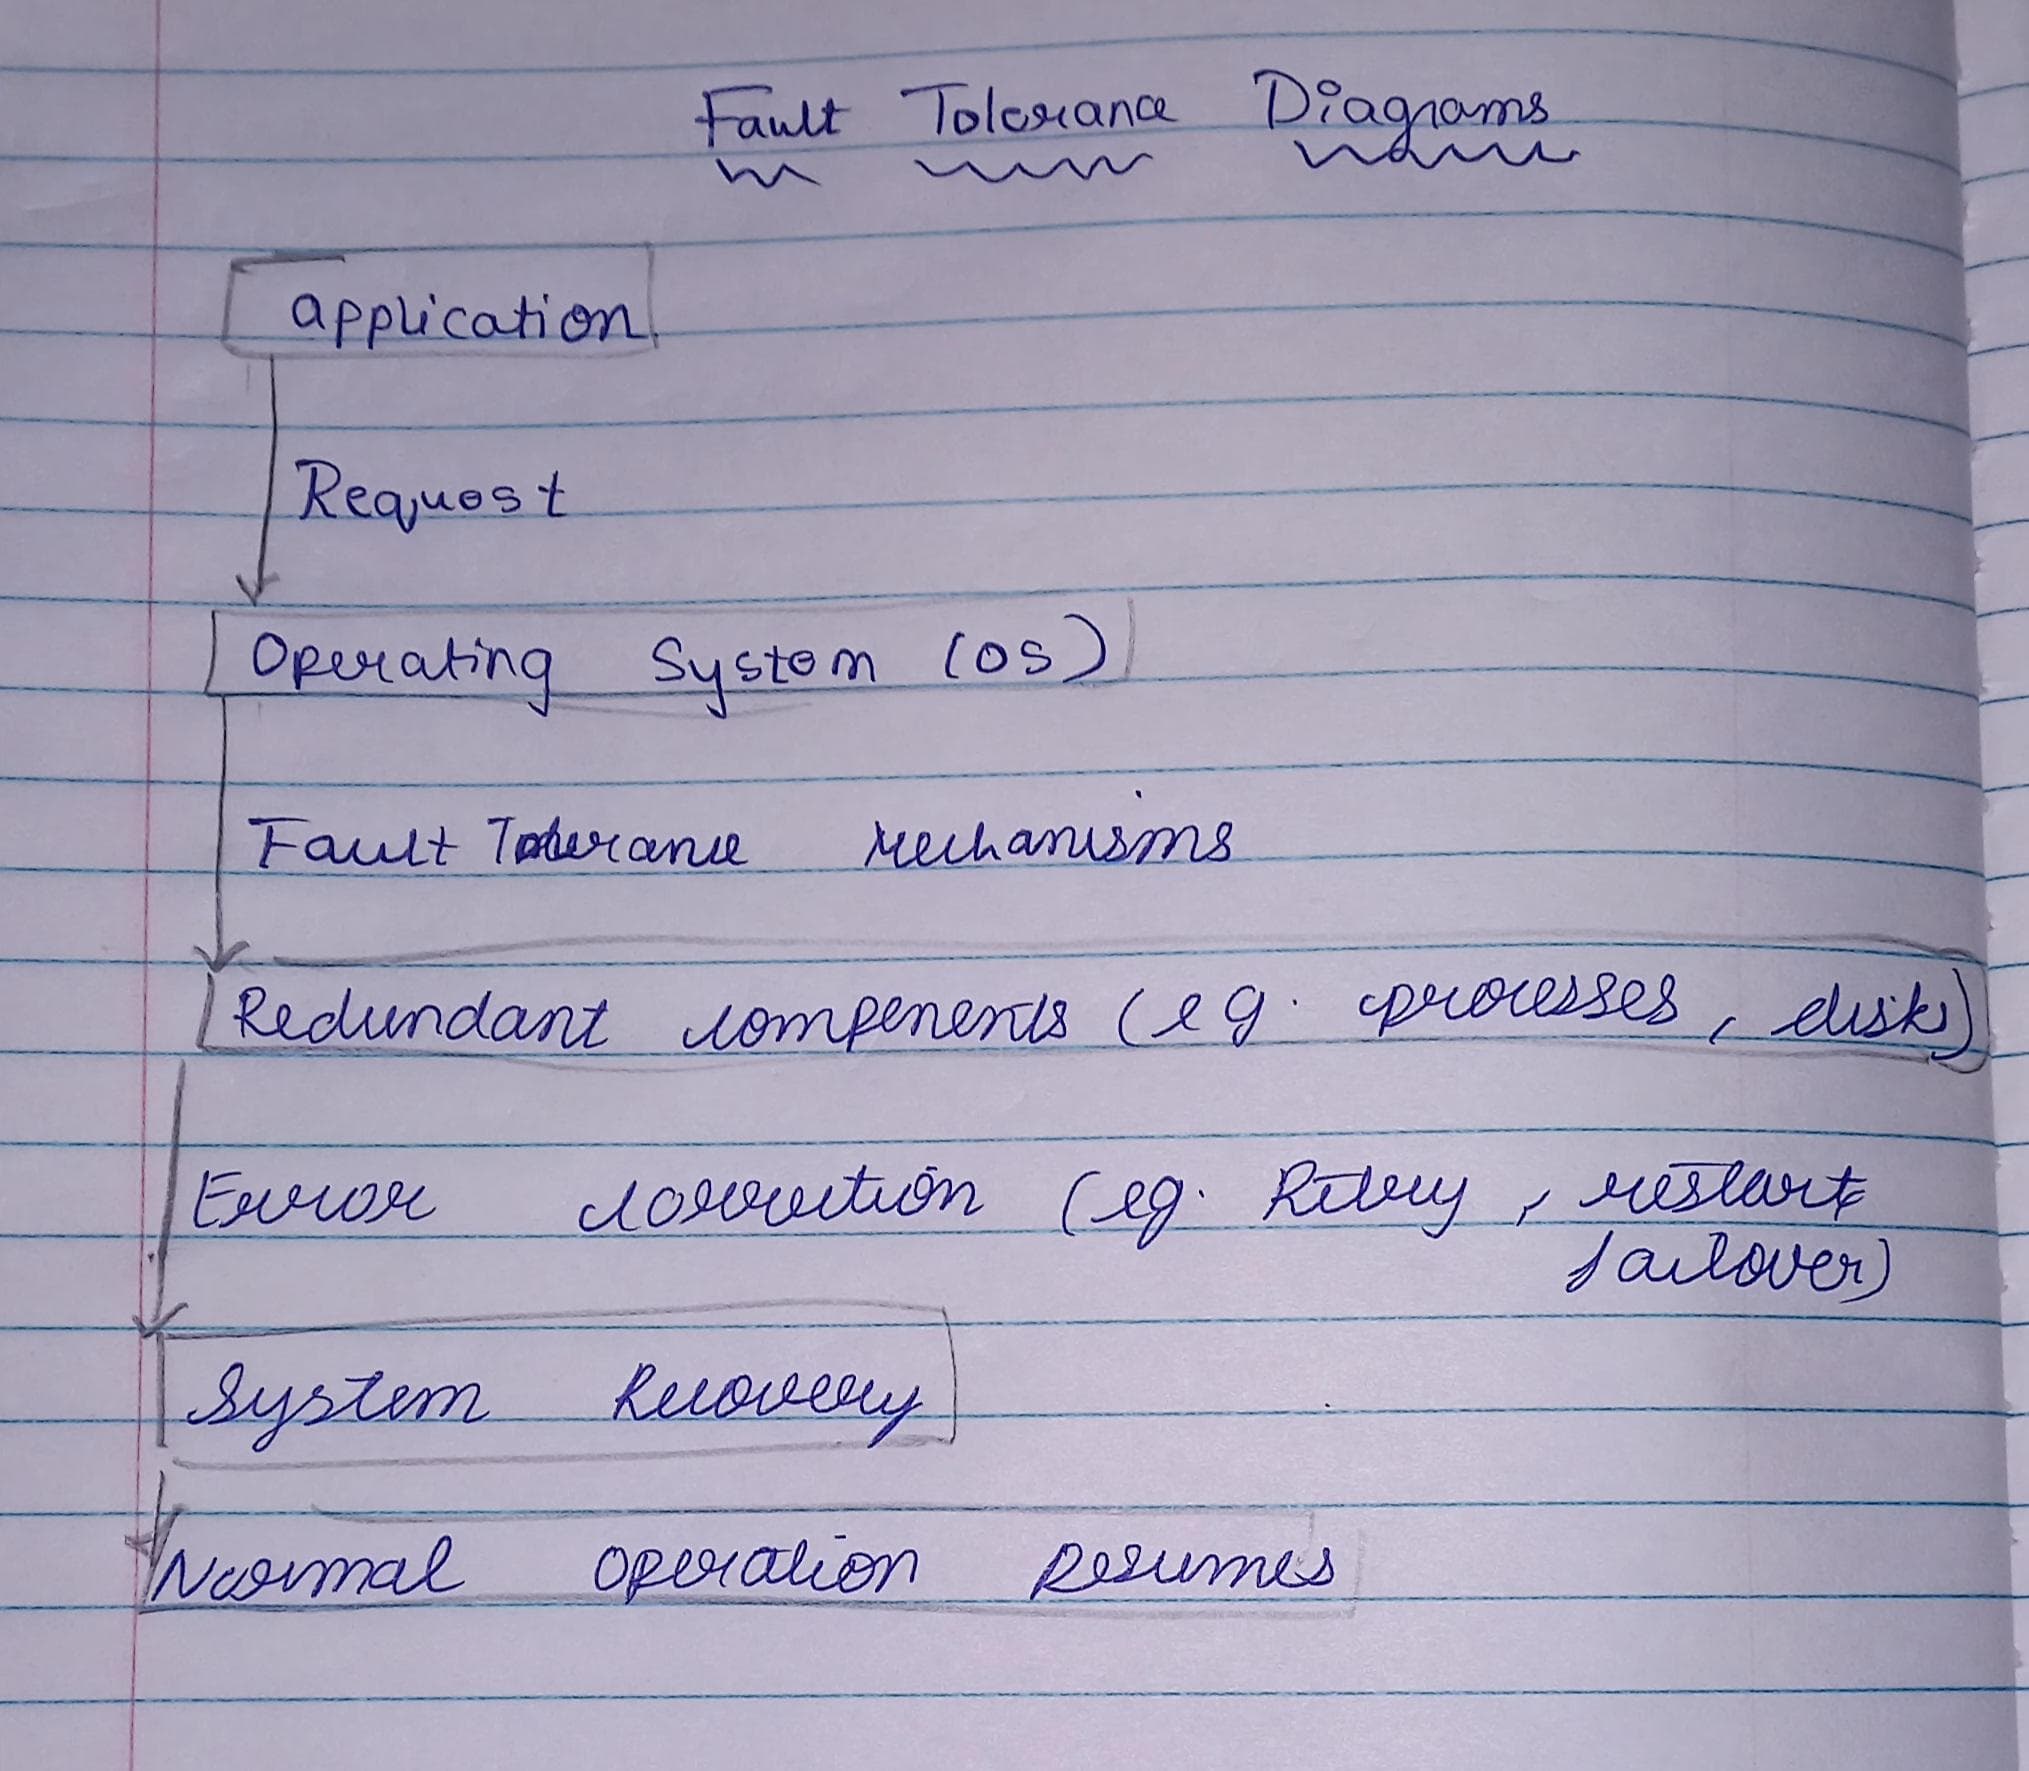 Fault Tolerance Diagrams
application
Request
Operating System (OS)
Fault Tolerance Mechanisms
Redundant components (eg. processes, disks)
Error correction (eg. Retry, restart
failover)
System Recovery
Normal operation Resumes